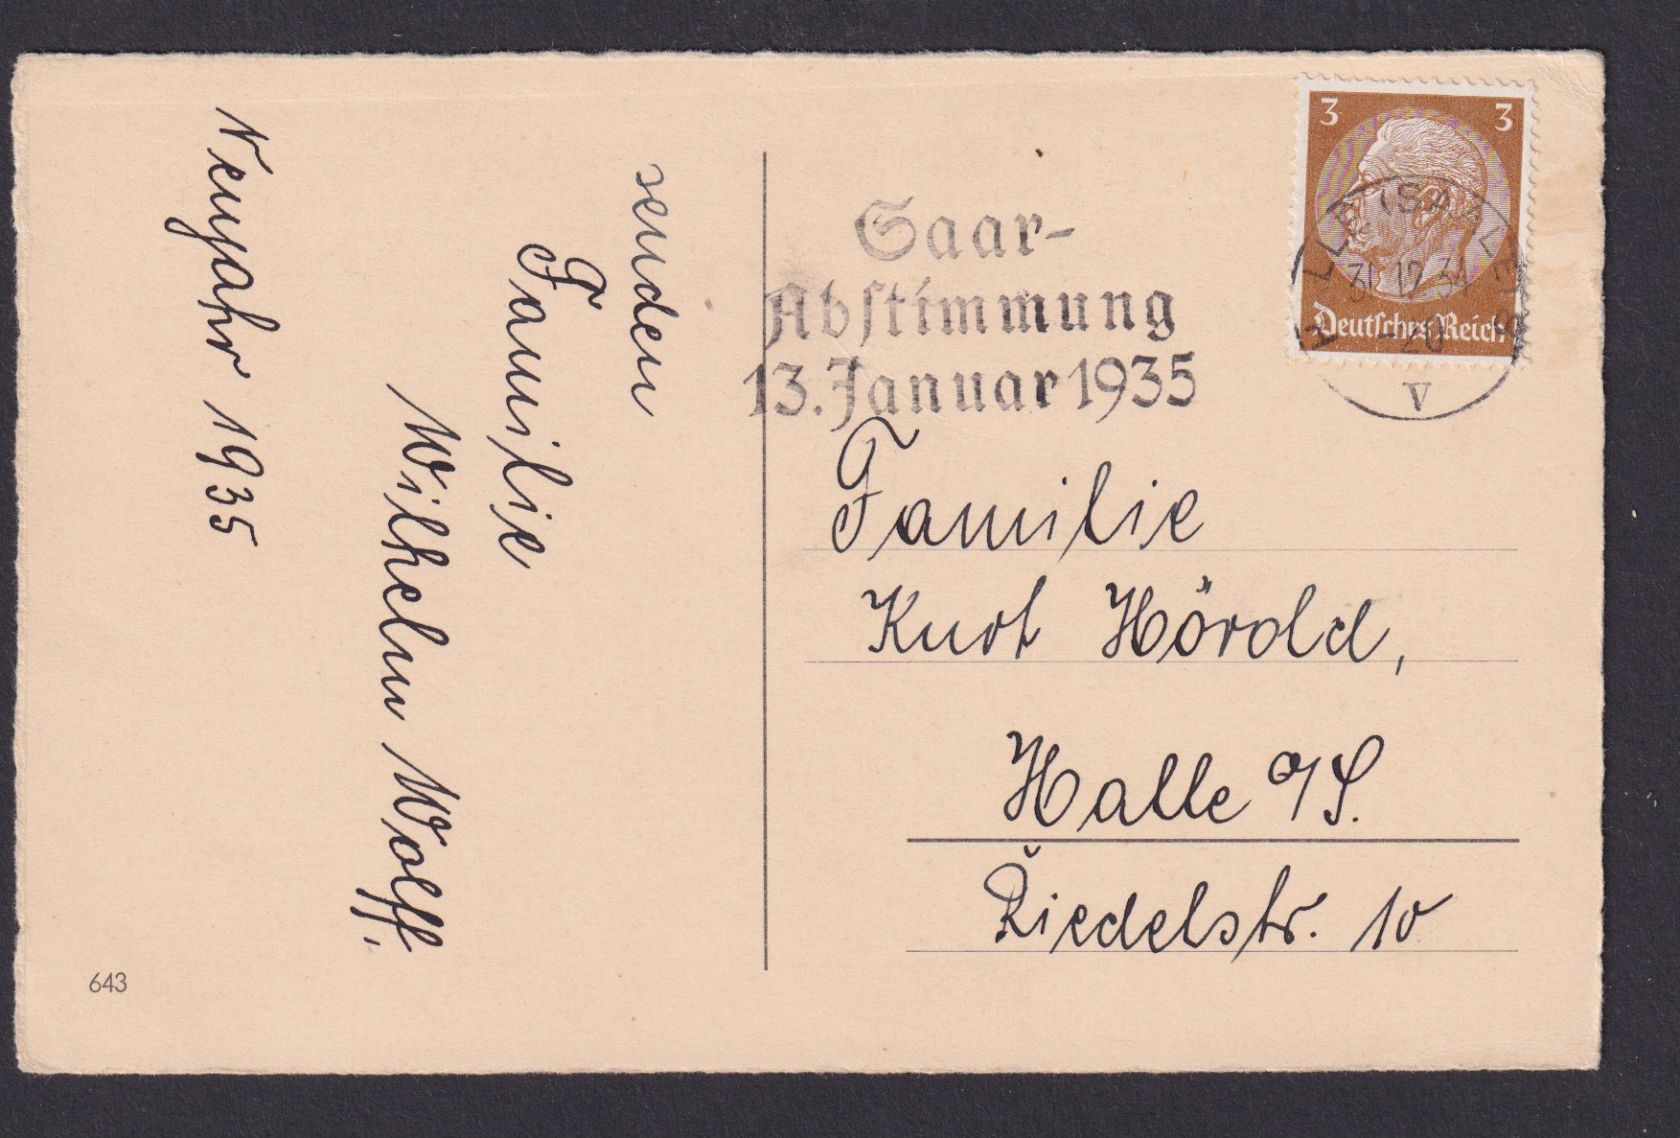 senden
Familie
Wilhelm Wolff.
Neujahr 1935
643
3 3
Deutsches Reich
HALLE (SAALE)
31.12.34
-20
V
Saar-
Abstimmung
13. Januar 1935
Familie
Kurt Hörold,
Halle a/S.
Riedelstr. 10